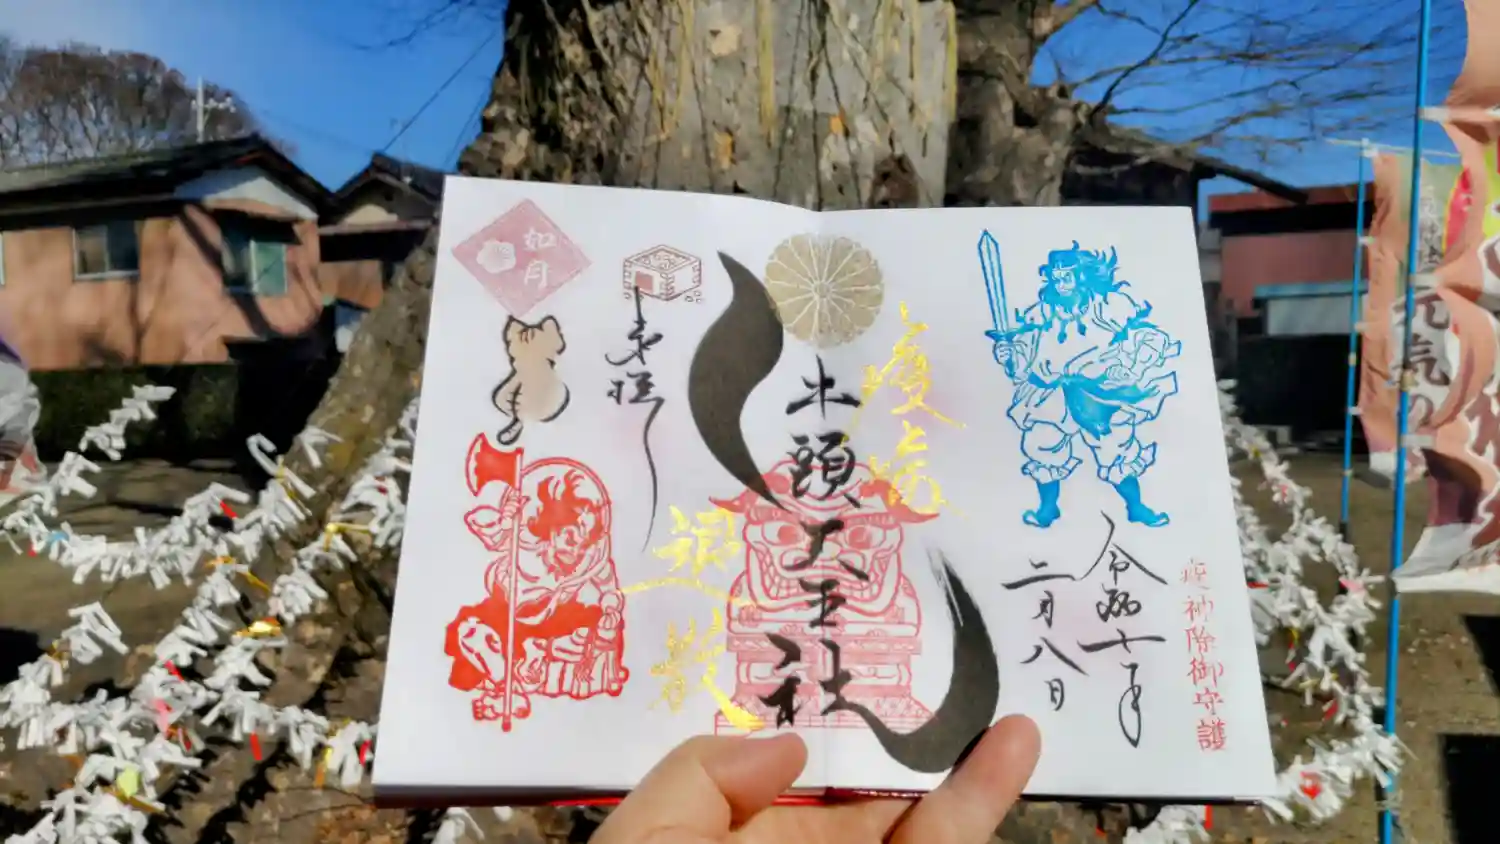 疫神除御守護
令和七年
二月八日
牛頭天王社
奉拝
如月
元気